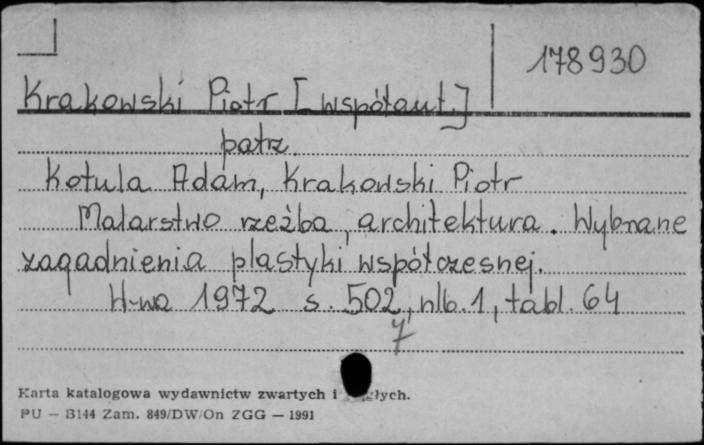 178930
Krakowski Piotr [współaut.]
patrz
Kotula Adam, Krakowski Piotr
Malarstwo rzeźba, architektura. Wybrane
zagadnienia plastyki współczesnej.
W-wa 1972 s. 502, nlb. 1, tabl. 64
7
Karta katalogowa wydawnictw zwartych i
PU — B144 Zam. 849/DW/On ZGG — 1991